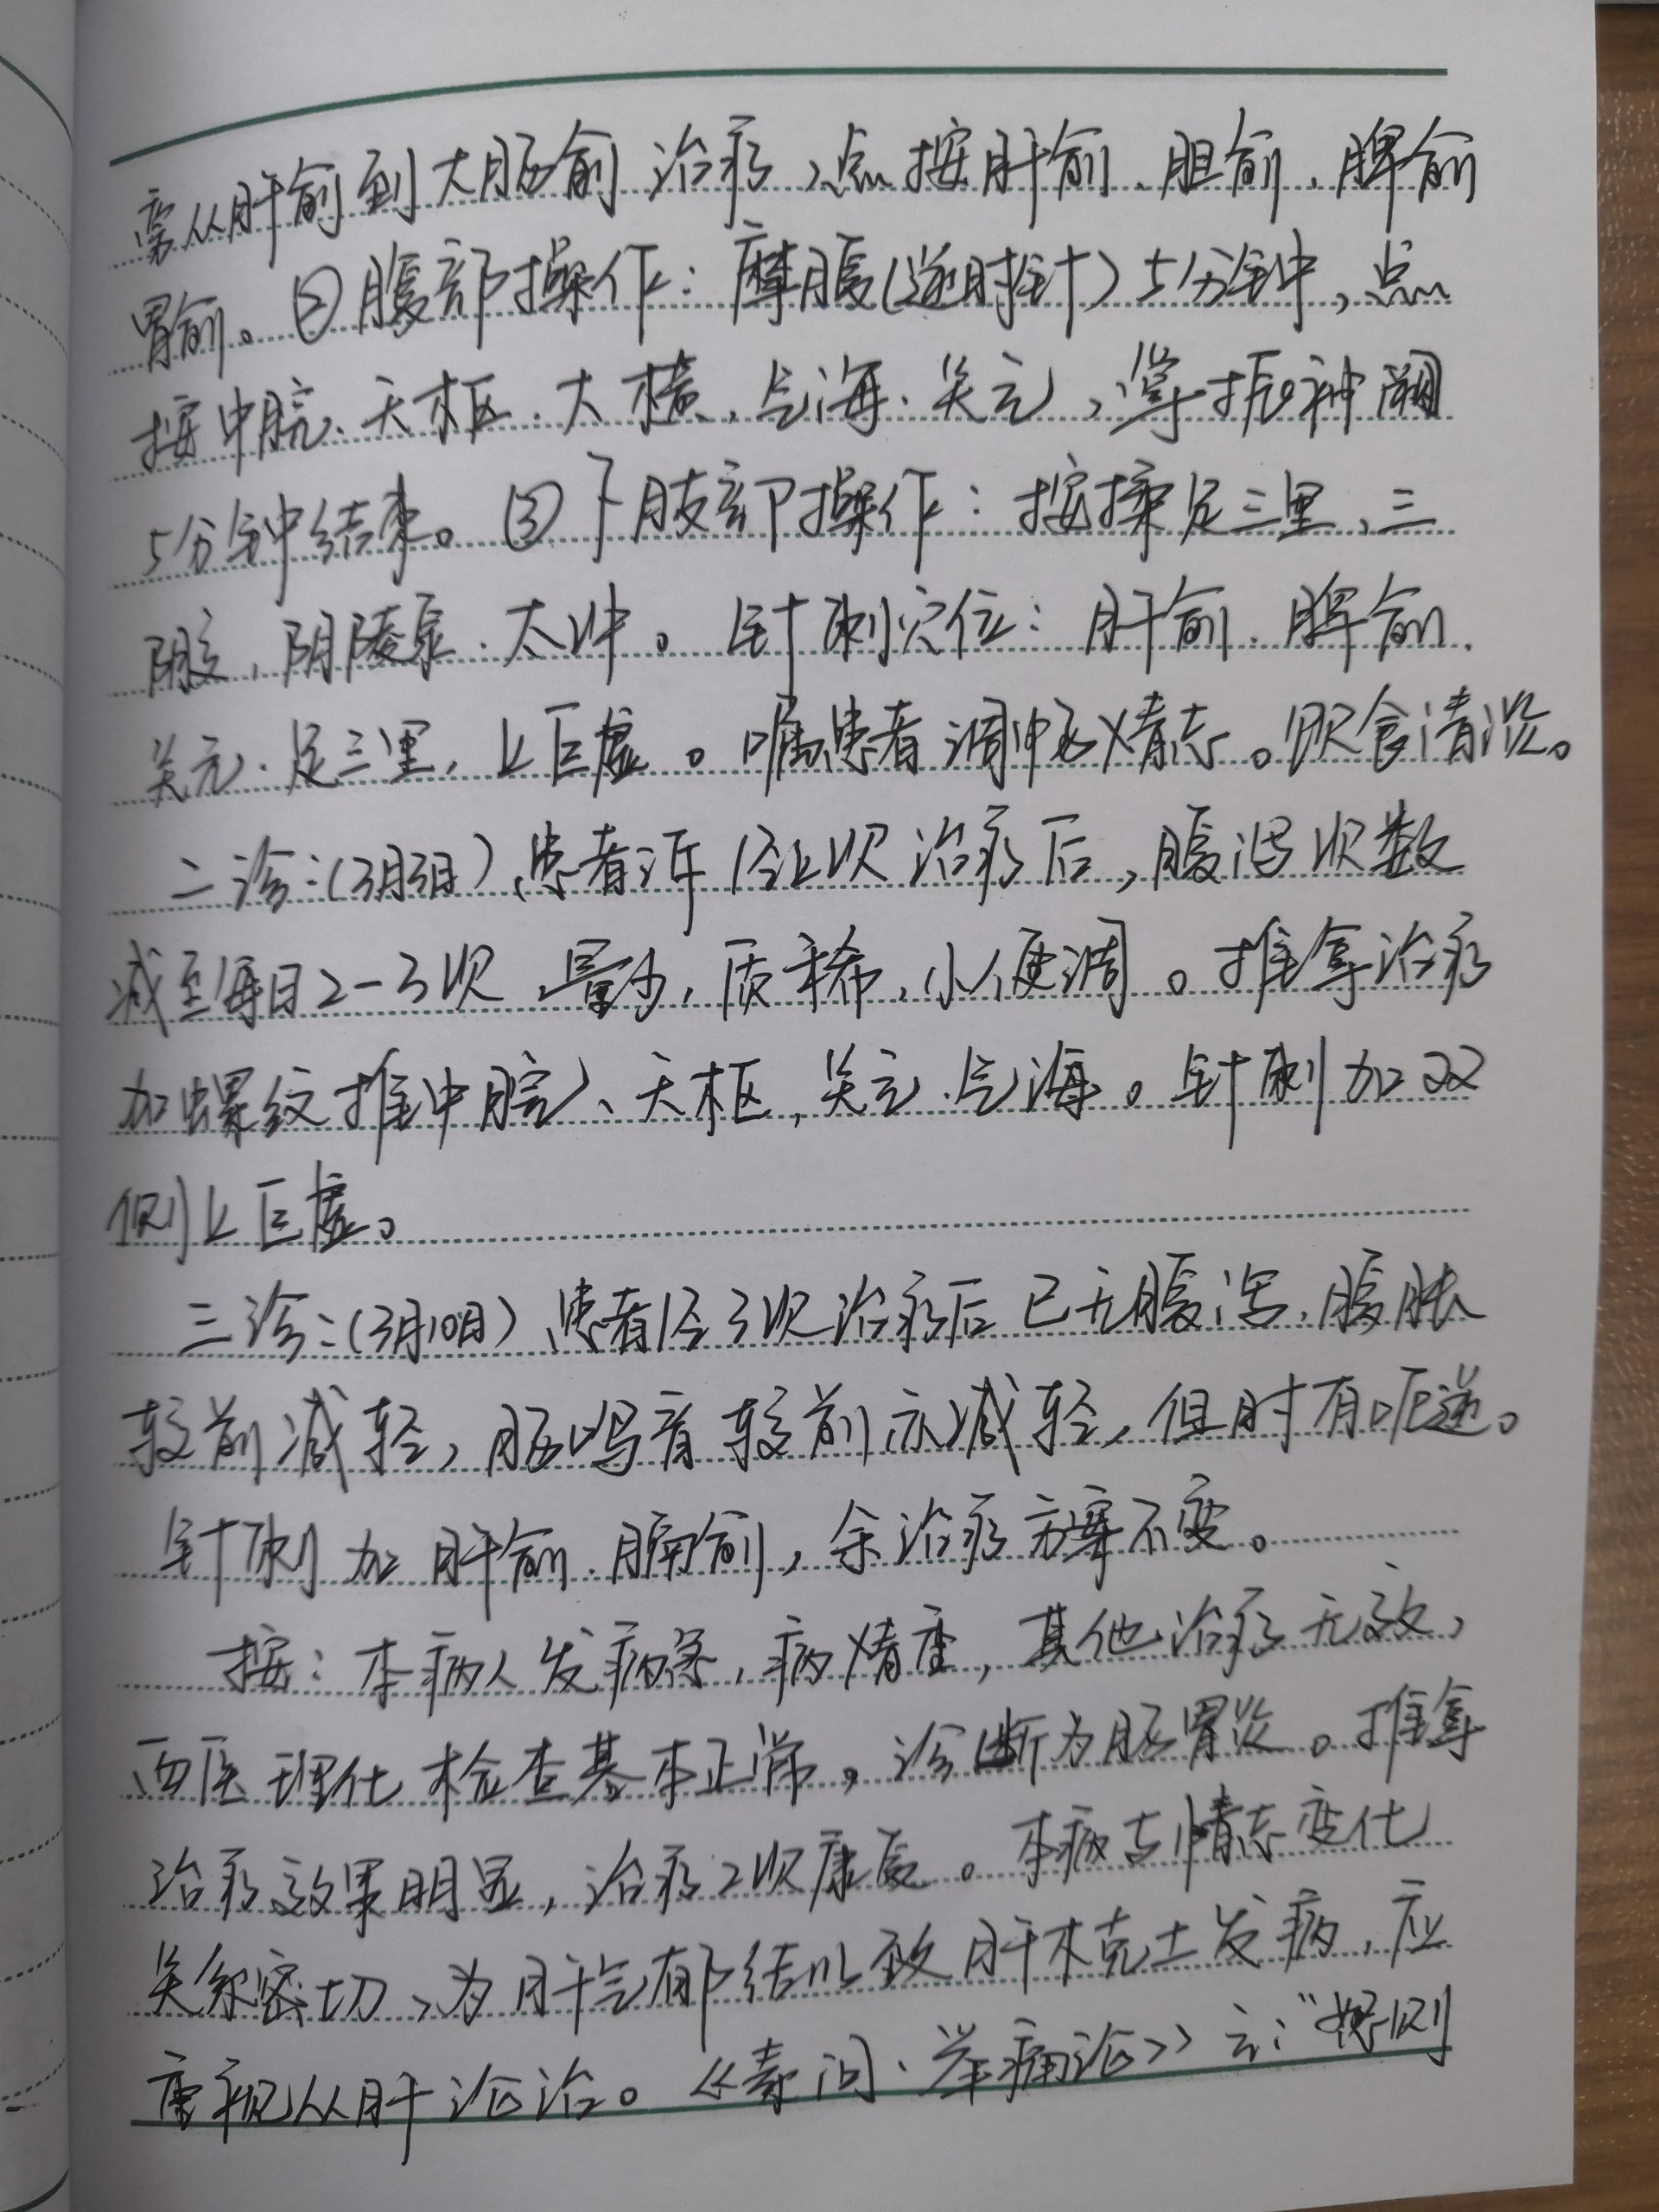 需从肝俞到大肠俞治疗，点按肝俞、胆俞、脾俞
胃俞。②腹部操作：摩腹（逆时针）5分钟，点
按中脘、天枢、大横、气海、关元，掌振神阙
5分钟结束。③下肢部操作：按揉足三里、三
阴交、阴陵泉、太冲。针刺穴位：肝俞、脾俞、
关元、足三里、上巨虚。嘱患者调畅情志。饮食清淡。
二诊：（3月3日）患者诉经上次治疗后，腹泻次数
减至每日2-3次，量少，质稀，小便调。推拿治疗
加螺纹推中脘、天枢，关元、气海。针刺加双
侧上巨虚。
三诊：（3月10日）患者经3次治疗后已无腹泻，腹胀
较前减轻，肠鸣音较前亦减轻，但时有呃逆。
针刺加肝俞、膈俞，余治疗方案不变。
按：本病人发病急，病情重，其他治疗无效，
西医理化检查基本正常，诊断为肠胃炎。推拿
治疗效果明显，治疗2次康复。本病与情志变化
关系密切，为肝气郁结以致肝木克土发病，应
重视从肝论治。《素问·举痛论》云：“怒则